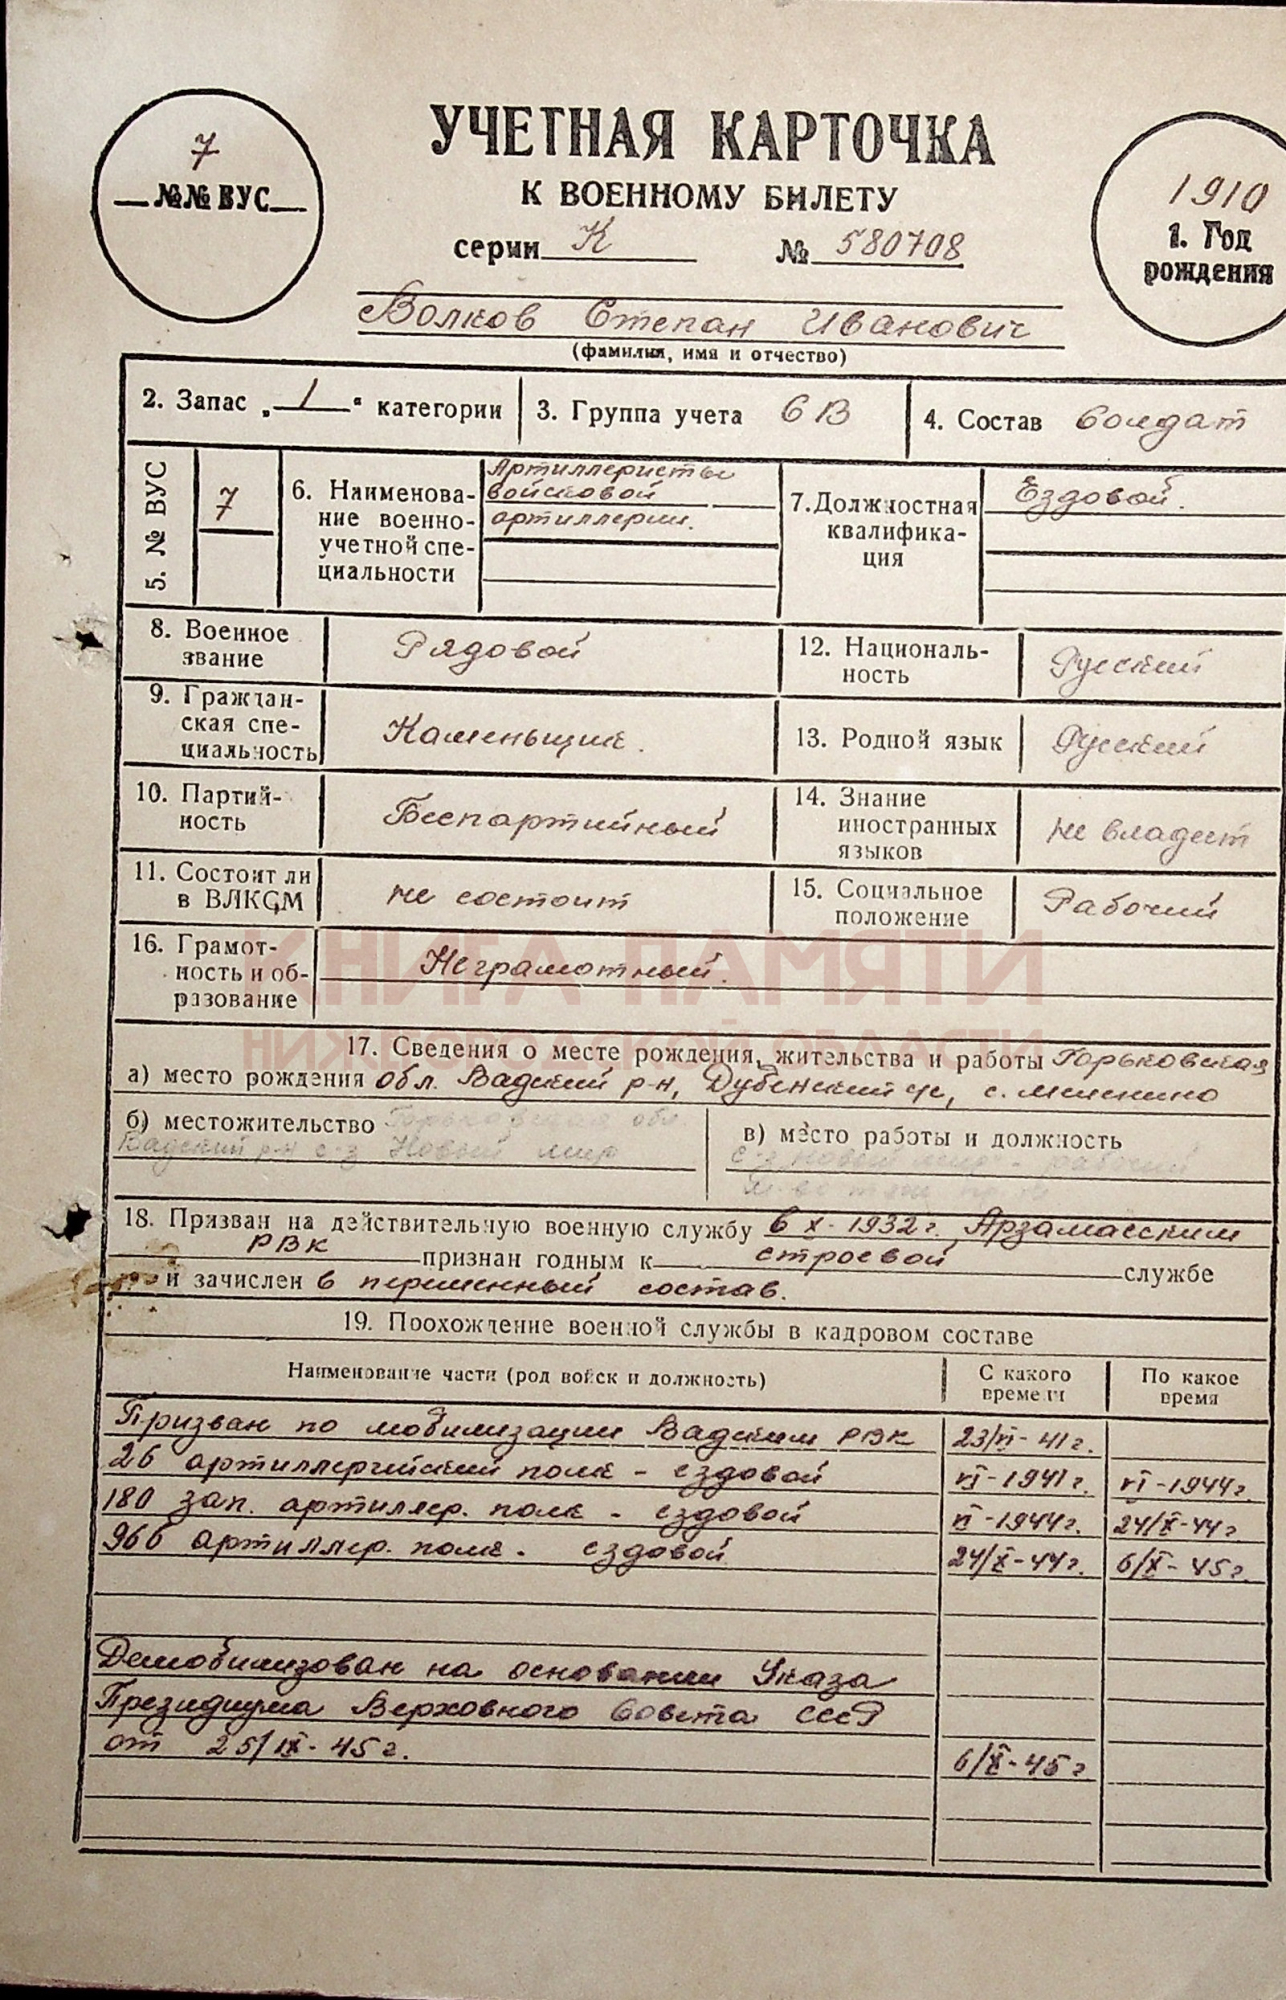 УЧЕТНАЯ КАРТОЧКА
К ВОЕННОМУ БИЛЕТУ
серии К № 580708
7
№№ ВУС
1910
1. Год
рождения
Волков Степан Иванович
(фамилия, имя и отчество)
2. Запас „1“ категории
3. Группа учета 6В
4. Состав Солдат
5. № ВУС
7
6. Наименова-
ние военно-
учетной спе-
циальности
Артиллеристы
войсковой
артиллерии.
7. Должностная
квалифика-
ция
Ездовой.
8. Военное
звание
Рядовой
12. Националь-
ность
Русский
9. Граждан-
ская спе-
циальность
Каменьщик.
13. Родной язык
Русский
10. Партий-
ность
Беспартийный
14. Знание
иностранных
языков
не владеет
11. Состоит ли
в ВЛКСМ
не состоит
15. Социальное
положение
Рабочий
16. Грамот-
ность и об-
разование
Неграмотный.
КНИГА ПАМЯТИ
НИЖЕГОРОДСКОЙ ОБЛАСТИ
17. Сведения о месте рождения, жительства и работы Горьковская
а) место рождения обл. Вадский р-н, Дубенский с/с, с.
б) местожительство Горьковская обл.
Вадский р-н с-з Новый мир
в) место работы и должность
с-з новый мир - рабочий
18. Призван на действительную военную службу 6 X - 1932 г. Арзамасским
РВК признан годным к строевой службе
и зачислен в переменный состав.
19. Прохождение военной службы в кадровом составе
Наименование части (род войск и должность)
С какого
времени
По какое
время
Призван по мобилизации Вадским РВК 23/VI - 41 г.
26 артиллерийский полк - ездовой VI - 1941 г. VI - 1944 г.
180 зап. артиллер. полк - ездовой VI - 1944 г. 24/X - 44 г.
966 артиллер. полк - ездовой 24/X - 44 г. 6/X - 45 г.
Демобилизован на основании Указа
Президиума Верховного Совета СССР
от 25/IX - 45 г. 6/X - 45 г